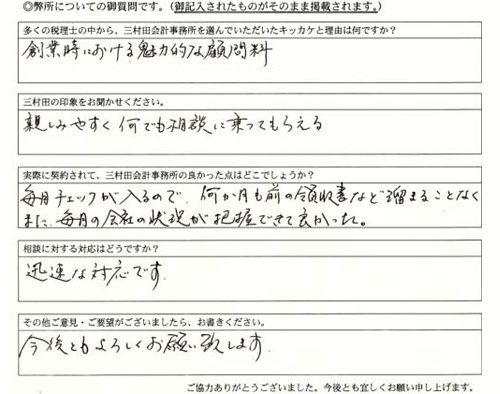 ◎弊所についての御質問です。（御記入されたものがそのまま掲載されます。）
多くの税理士の中から、三村田会計事務所を選んでいただいたキッカケと理由は何ですか？
創業時における魅力的な顧問料
三村田の印象をお聞かせください。
親しみやすく何でも相談に乗ってもらえる
実際に契約されて、三村田会計事務所の良かった点はどこでしょうか？
毎月チェックが入るので、何か月も前の領収書など溜まることなく
また、毎月の会社の状況が把握できて良かった。
相談に対する対応はどうですか？
迅速な対応です。
その他ご意見・ご要望がございましたら、お書きください。
今後ともよろしくお願い致します。
ご協力ありがとうございました。今後とも宜しくお願い申し上げます。